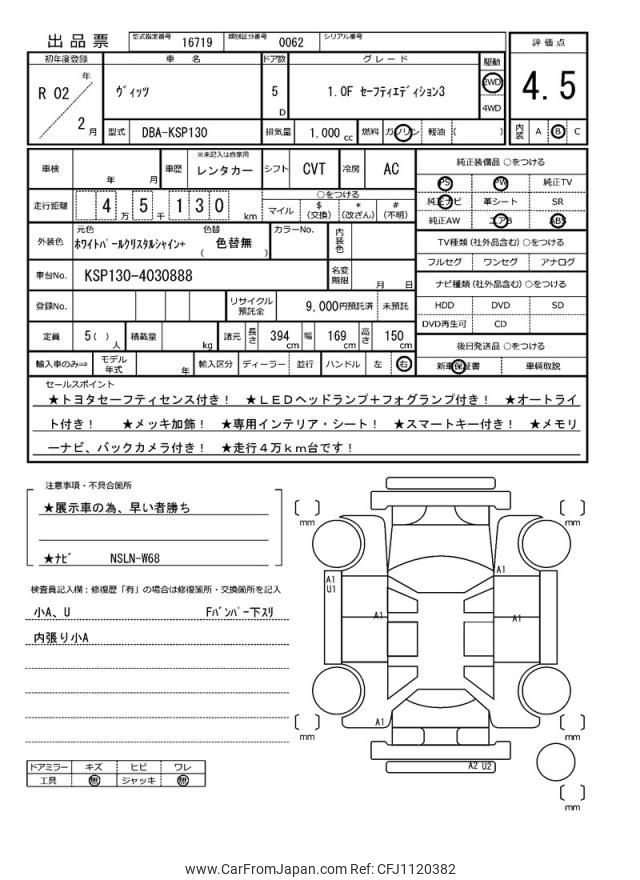 出品票
型式指定番号 16719 類別区分番号 0062 シリアル番号
評価点
4.5
内装 A B C
初年度登録 車名 ドア数 グレード 駆動
R 02 年 2 月
ヴィッツ 5 D 1.0F セーフティエディション3 2WD 4WD
型式 DBA-KSP130 排気量 1,000 cc 燃料 ガソリン 軽油 ( )
車検 年 月 車歴 ※未記入は自家用 レンタカー シフト CVT 冷房 AC
走行距離 4 5 1 3 0 万 千 km
○をつける
マイル $(交換) *(改ざん) #(不明)
外装色 元色 ホワイトパールクリスタルシャイン+ 色替 ( 色替無 ) カラーNo. 内装色
車台No. KSP130-4030888 名変期限 月 日
登録No. リサイクル預託金 9,000円預託済 未預託
定員 5( )人 積載量 kg 諸元 長さ 394 cm 幅 169 cm 高さ 150 cm
輸入車のみ⇒ モデル年式 年 輸入区分 ディーラー 並行 ハンドル 左 右
純正装備品 ○をつける
PS PW 純正TV
純正ナビ 革シート SR
純正AW エアB ABS
TV種類(社外品含む)○をつける
フルセグ ワンセグ アナログ
ナビ種類(社外品含む)○をつける
HDD DVD SD
DVD再生可 CD
後日発送品 ○をつける
新車保証書 車輌取説
セールスポイント
★トヨタセーフティセンス付き! ★LEDヘッドランプ+フォグランプ付き! ★オートライ
ト付き! ★メッキ加飾! ★専用インテリア・シート! ★スマートキー付き! ★メモリ
ーナビ、バックカメラ付き! ★走行4万km台です!
注意事項・不具合箇所
★展示車の為、早い者勝ち
★ナビ NSLN-W68
検査員記入欄:修復歴「有」の場合は修復箇所・交換箇所を記入
小A、U Fバンパー下スリ
内張り小A
ドアミラー キズ ヒビ ワレ
工具 無 ジャッキ 無
mm
mm
A1
U1
A1
A1
A1
mm
mm
A2 U2
mm
www.CarFromJapan.com Ref: CFJ1120382